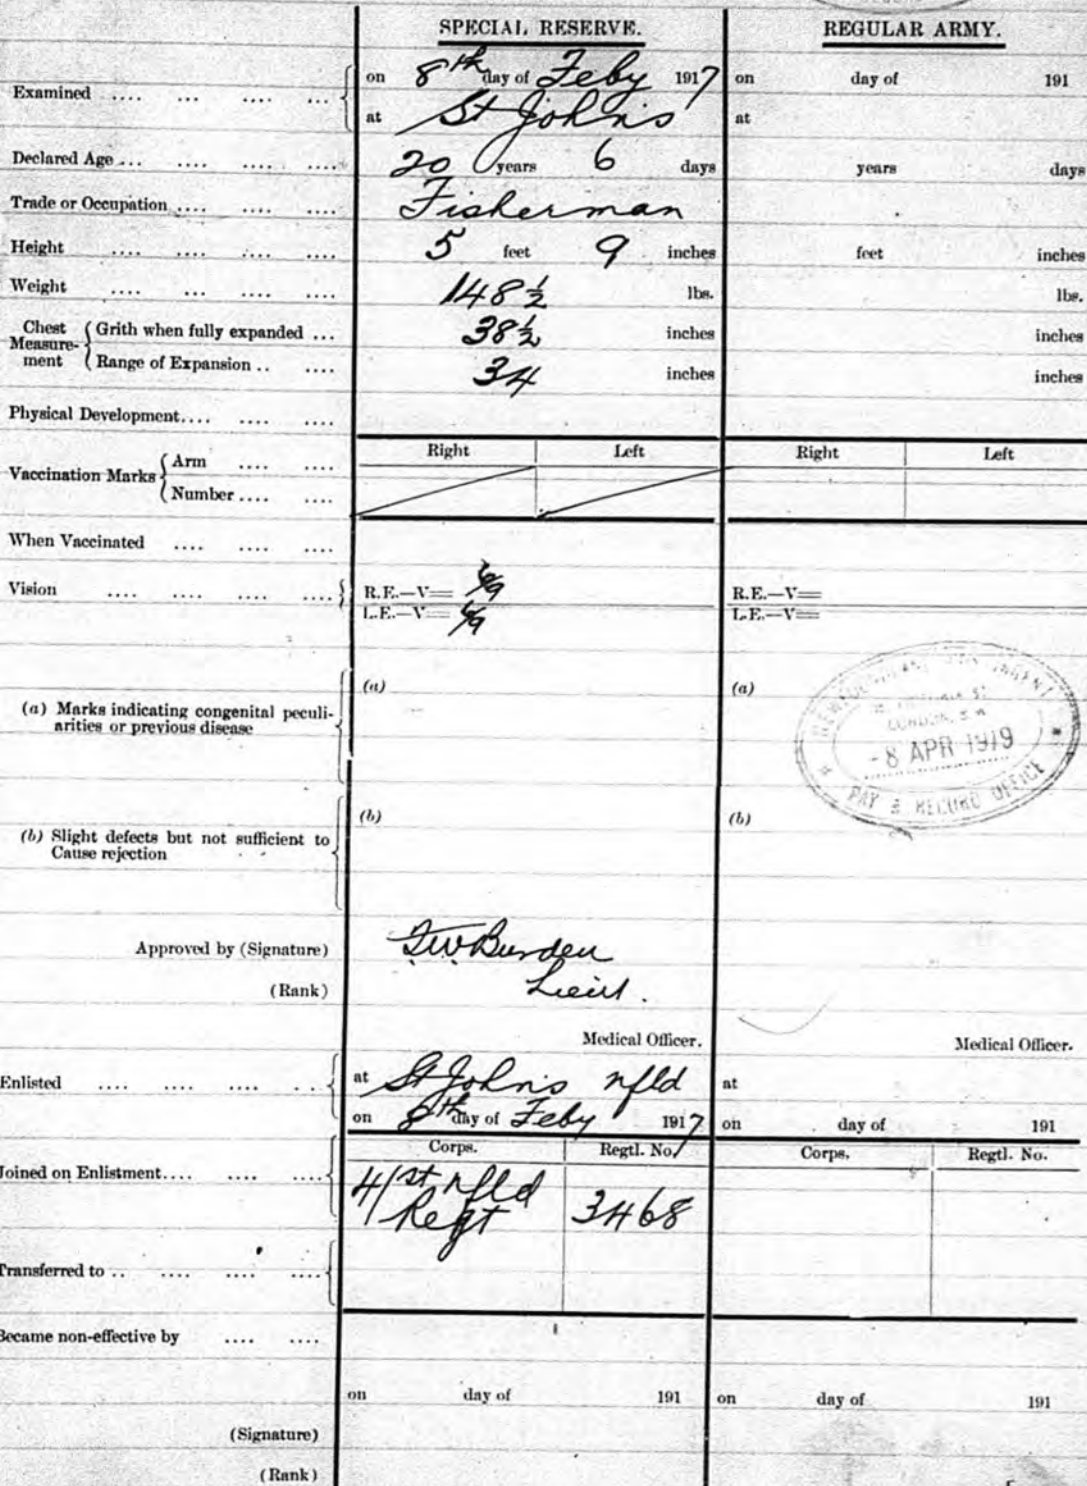 SPECIAL RESERVE. REGULAR ARMY.
Examined .... ... .... ... on 8th day of Feby 1917 on day of 191
at St John's at
Declared Age ... .... .... .... 20 years 6 days years days
Trade or Occupation .... .... .... Fisherman
Height .... .... .... .... 5 feet 9 inches feet inches
Weight .... ... .... .... 148½ lbs. lbs.
Chest Measure-ment Grith when fully expanded ... 38½ inches inches
Range of Expansion .. .... 34 inches inches
Physical Development.... .... ....
Right Left Right Left
Vaccination Marks Arm .... ....
Number .... ....
When Vaccinated .... .... ....
Vision .... .... .... .... R.E.—V= 6/9 R.E.—V=
L.E.—V= 6/9 L.E.—V=
(a) Marks indicating congenital peculi- (a) (a)
arities or previous disease
NEWFOUNDLAND CONTINGENT
LONDON, S.W.
- 8 APR 1919
PAY & RECORD OFFICE
(b) Slight defects but not sufficient to (b) (b)
Cause rejection
Approved by (Signature) Burden
(Rank) Lieut.
Medical Officer. Medical Officer.
Enlisted .... .... .... .. at St John's nfld at
on 8th day of Feby 1917 on day of 191
Corps. Regtl. No. Corps. Regtl. No.
Joined on Enlistment.... .... .... 1st nfld
Regt 3468
Transferred to .. .... .... ....
Became non-effective by .... ....
on day of 191 on day of 191
(Signature)
(Rank)